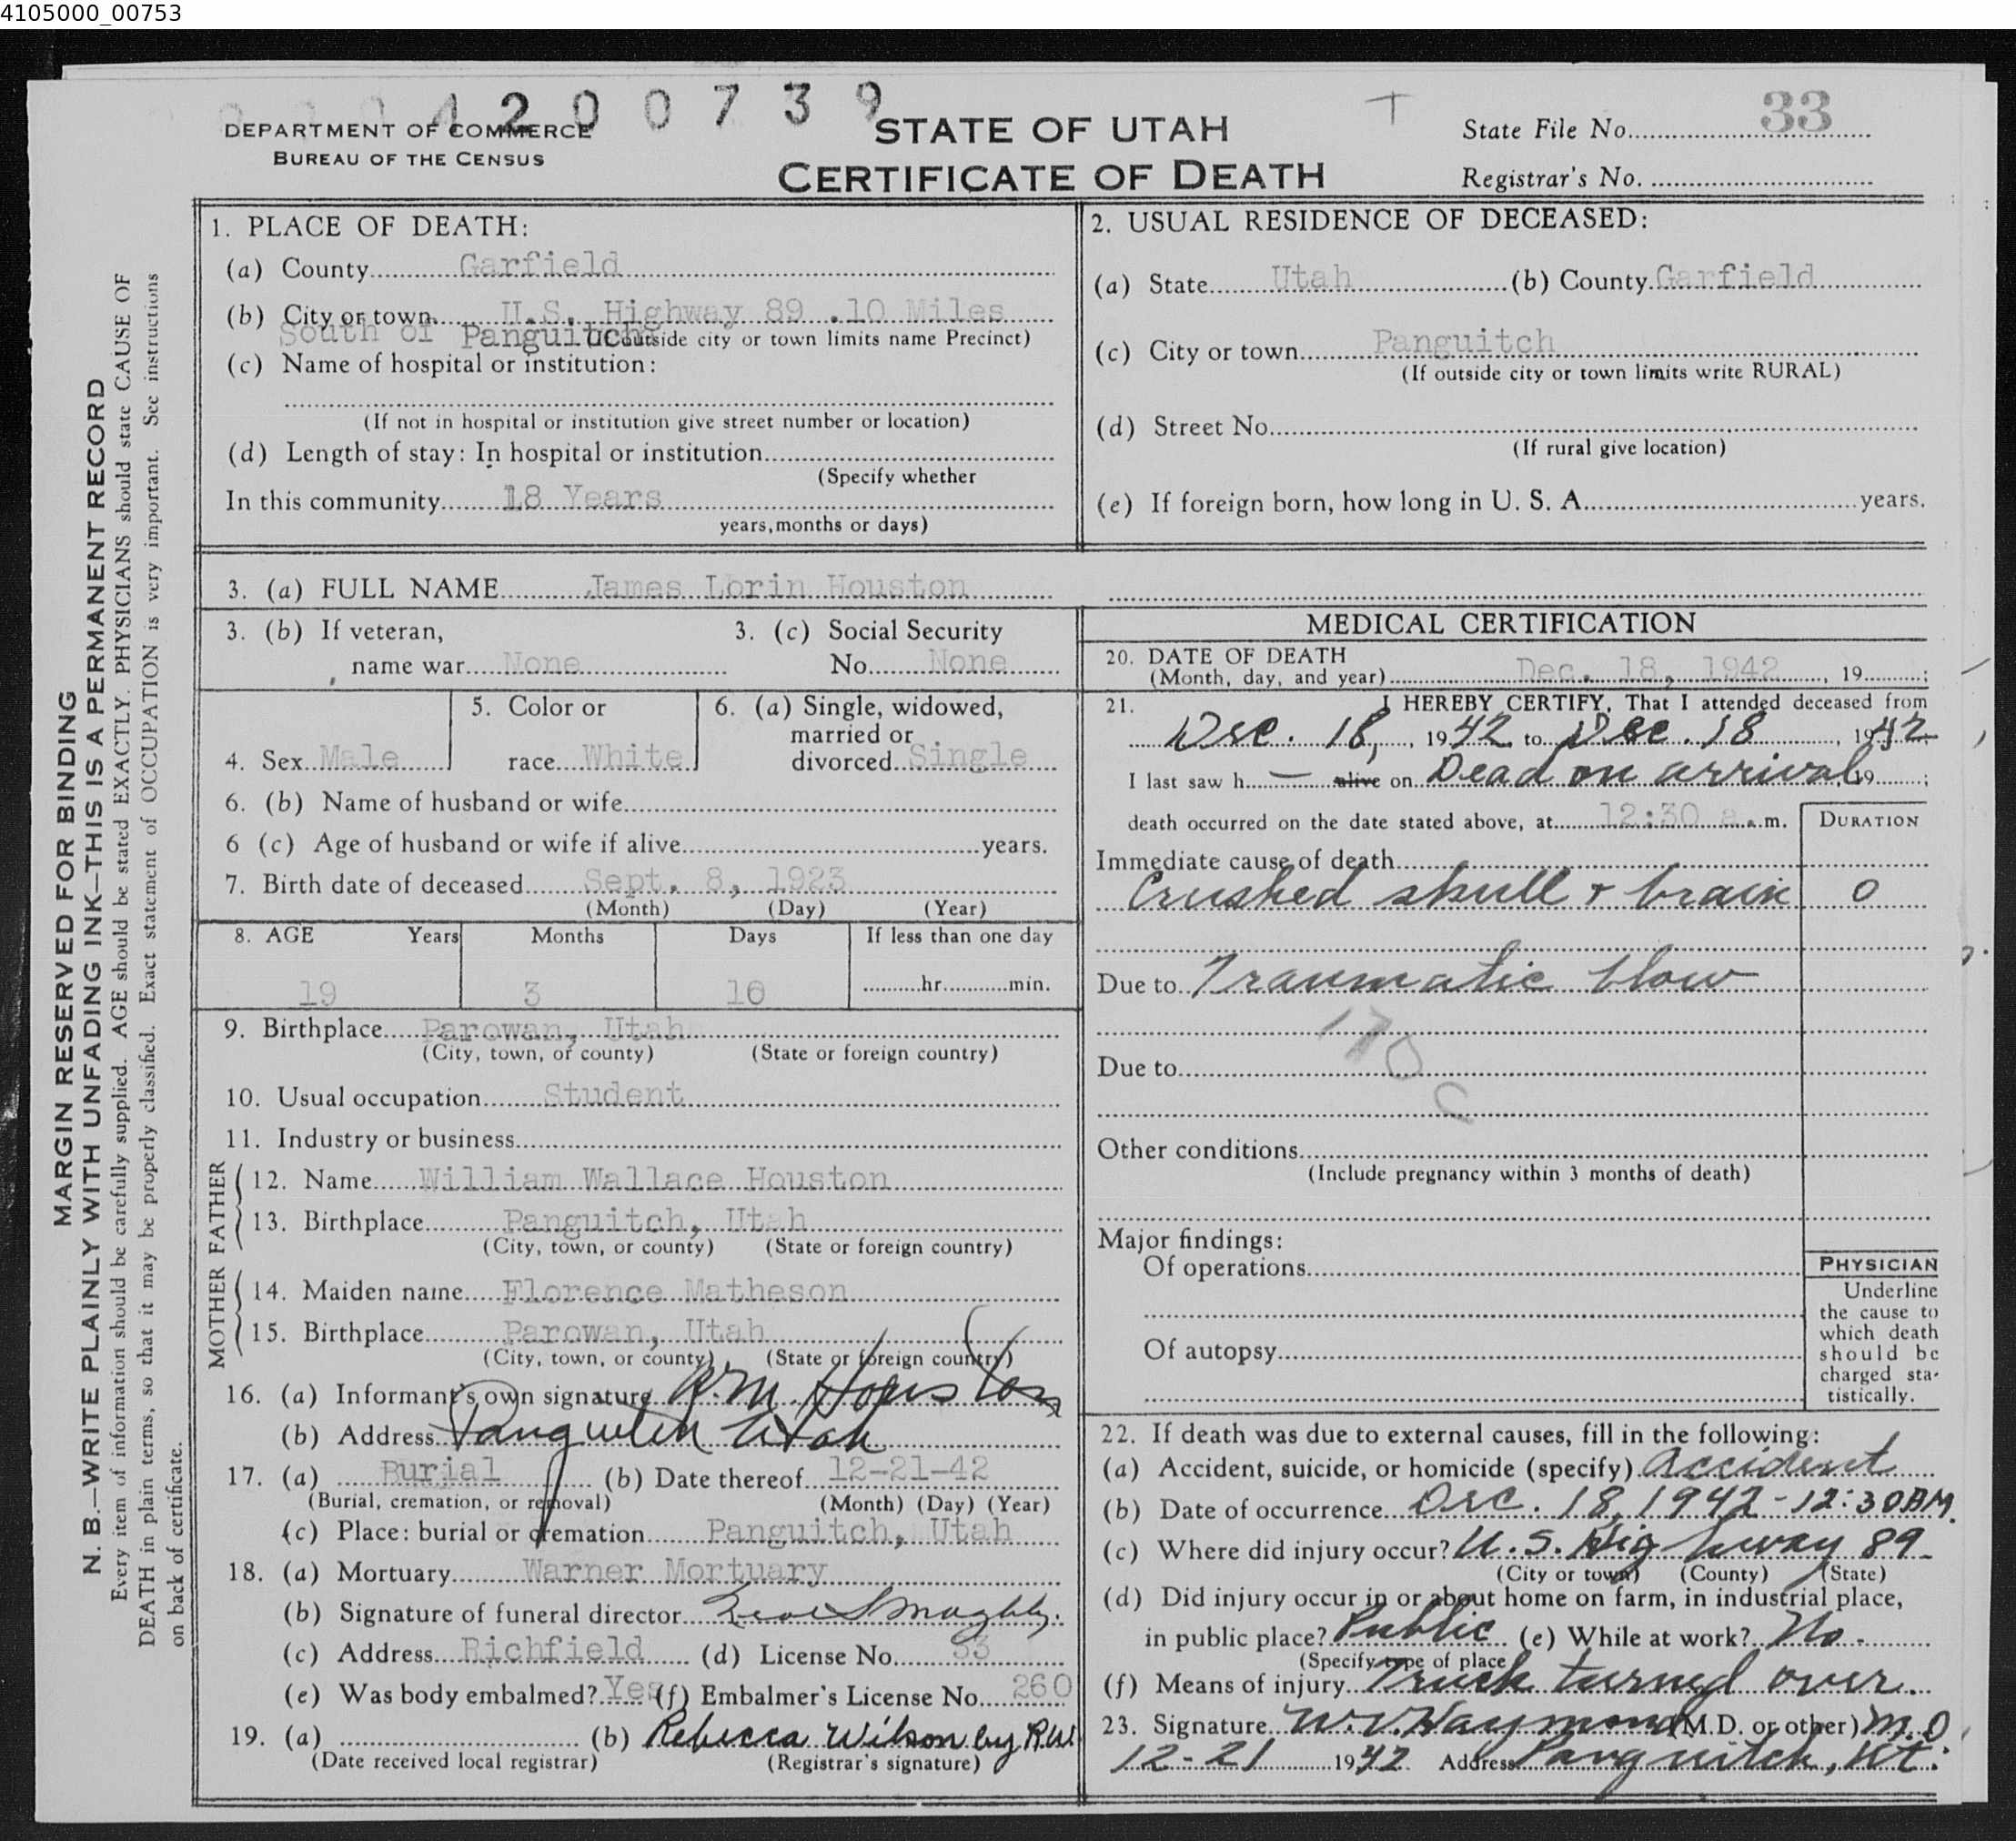 4105000_00753
4200739
DEPARTMENT OF COMMERCE
BUREAU OF THE CENSUS
STATE OF UTAH
CERTIFICATE OF DEATH
T
State File No. 33
Registrar's No.
MARGIN RESERVED FOR BINDING
N. B.—WRITE PLAINLY WITH UNFADING INK—THIS IS A PERMANENT RECORD
Every item of information should be carefully supplied. AGE should be stated EXACTLY. PHYSICIANS should state CAUSE OF
DEATH in plain terms, so that it may be properly classified. Exact statement of OCCUPATION is very important. See instructions
on back of certificate.
1. PLACE OF DEATH:
(a) County Garfield
(b) City or town U.S. Highway 89 .10 Miles
South of Panguitch (If outside city or town limits name Precinct)
(c) Name of hospital or institution:
(If not in hospital or institution give street number or location)
(d) Length of stay: In hospital or institution
(Specify whether
In this community 18 Years
years, months or days)
2. USUAL RESIDENCE OF DECEASED:
(a) State Utah (b) County Garfield
(c) City or town Panguitch
(If outside city or town limits write RURAL)
(d) Street No.
(If rural give location)
(e) If foreign born, how long in U. S. A. years.
3. (a) FULL NAME James Lorin Houston
3. (b) If veteran, name war None
3. (c) Social Security No. None
4. Sex Male
5. Color or race White
6. (a) Single, widowed, married or divorced Single
6. (b) Name of husband or wife
6 (c) Age of husband or wife if alive years.
7. Birth date of deceased Sept. 8, 1923
(Month) (Day) (Year)
8. AGE Years Months Days If less than one day
19 3 10 hr. min.
9. Birthplace Parowan, Utah
(City, town, or county) (State or foreign country)
10. Usual occupation Student
11. Industry or business
FATHER
12. Name William Wallace Houston
13. Birthplace Panguitch, Utah
(City, town, or county) (State or foreign country)
MOTHER
14. Maiden name Florence Matheson
15. Birthplace Parowan, Utah
(City, town, or county) (State or foreign country)
16. (a) Informant's own signature R.M. Houston
(b) Address Panguitch Utah
17. (a) Burial (b) Date thereof 12-21-42
(Burial, cremation, or removal) (Month) (Day) (Year)
(c) Place: burial or cremation Panguitch, Utah
18. (a) Mortuary Warner Mortuary
(b) Signature of funeral director
(c) Address Richfield (d) License No. 33
(e) Was body embalmed? Yes (f) Embalmer's License No. 260
19. (a) (b) Rebecca Wilson by RW
(Date received local registrar) (Registrar's signature)
MEDICAL CERTIFICATION
20. DATE OF DEATH
(Month, day, and year) Dec. 18, 1942, 19 ;
21. I HEREBY CERTIFY, That I attended deceased from
Dec. 18, 1942 to Dec. 18, 1942
I last saw h — alive on Dead on arrival, 19 ;
death occurred on the date stated above, at 12:30 a.m.
DURATION
Immediate cause of death
Crushed skull + brain 0
Due to Traumatic blow
170
Due to
C
Other conditions
(Include pregnancy within 3 months of death)
Major findings:
Of operations
Of autopsy
PHYSICIAN
Underline
the cause to
which death
should be
charged sta-
tistically.
22. If death was due to external causes, fill in the following:
(a) Accident, suicide, or homicide (specify) Accident
(b) Date of occurrence Dec. 18, 1942 - 12:30 AM.
(c) Where did injury occur? U.S. Highway 89
(City or town) (County) (State)
(d) Did injury occur in or about home on farm, in industrial place,
in public place? Public (e) While at work? No
(Specify type of place
(f) Means of injury Truck turned over.
23. Signature W.V. Haymond (M.D. or other) M.D.
12-21 1942 Address Panguitch, Ut.